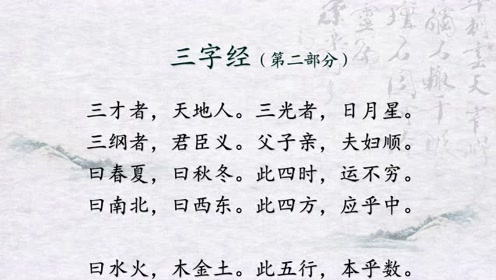 三字经（第二部分）
三才者，天地人。三光者，日月星。
三纲者，君臣义。父子亲，夫妇顺。
曰春夏，曰秋冬。此四时，运不穷。
曰南北，曰西东。此四方，应乎中。
曰水火，木金土。此五行，本乎数。